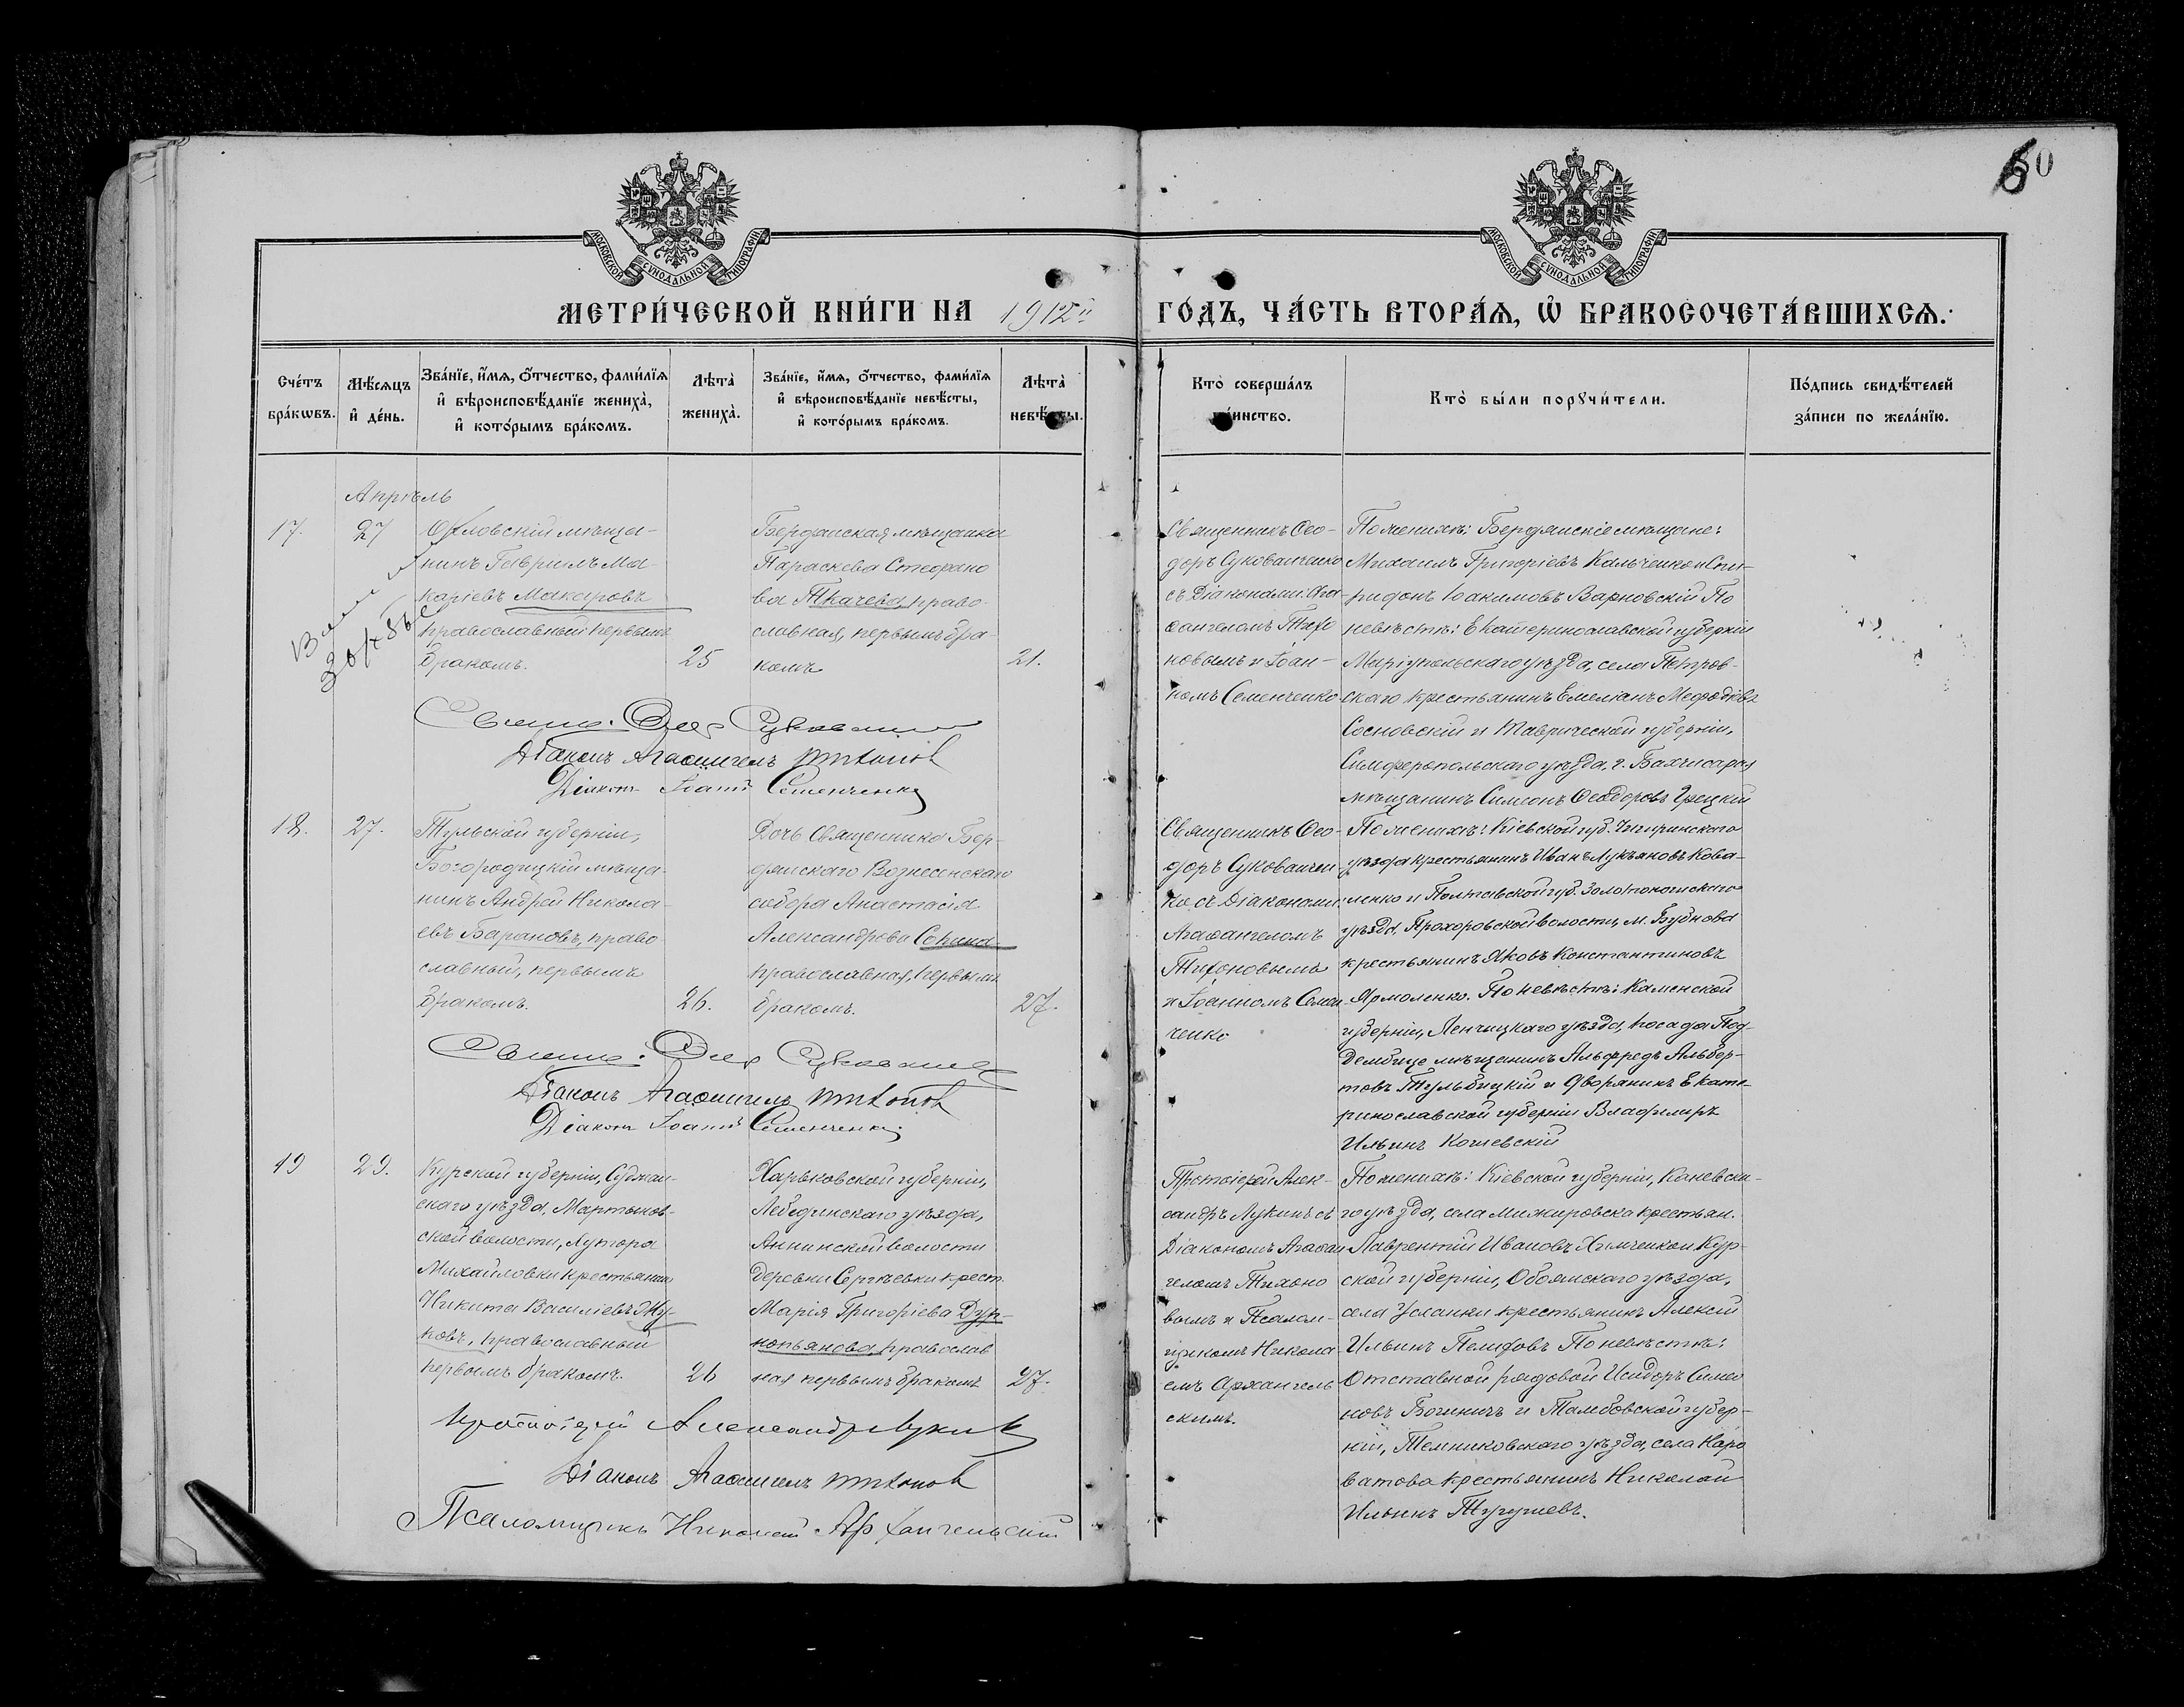 60
МОСКОВСКОЙ СУНОДАЛЬНОЙ ТИПОГРАФІИ
МОСКОВСКОЙ СУНОДАЛЬНОЙ ТИПОГРАФІИ
МЕТРИ́ЧЕСКОЙ КНИ́ГИ НА 1912й ГО́ДЪ, ЧА́СТЬ ВТОРА́Ѧ, Ѽ БРАКОСОЧЕТА́ВШИХСѦ.
Сче́тъ бра́кѡвъ.
Мѣ́сѧцъ и҆ де́нь.
Зва́нїе, и҆́мѧ, о҆́тчество, фами́лїѧ и҆ вѣроисповѣ́данїе жениха̀, и҆ кото́рымъ бра́комъ.
Лѣта̀ жениха̀.
Зва́нїе, и҆́мѧ, о҆́тчество, фами́лїѧ и҆ вѣроисповѣ́данїе невѣ́сты, и҆ кото́рымъ бра́комъ.
Лѣта̀ невѣ́сты.
Кто̀ соверша́лъ та́инство.
Кто̀ бы́ли порꙋчи́тели.
По́дпись свидѣ́телей за́писи по жела́нїю.
Апрѣль
17.
27
Орловскій мѣща-
нинъ Гавріилъ Ма-
каріевъ Макаровъ
православный первымъ
бракомъ.
25
Бердянская мѣщанка
Параскева Стефано
ва Ткачева, право-
славная, первымъ бра-
комъ
21.
Священникъ Ѳео-
доръ Сукованченко
съ Діаконами: Ага-
ѳангеломъ Тихо
новымъ и Іоан-
номъ Семенченко
По женихѣ: Бердянскіе мѣщане:
Михаилъ Григоріевъ Кальченко и Спи-
ридонъ Іоакимовъ Варновскій По
невѣстѣ: Екатеринославской губерніи
Маріупольскаго уѣзда, села Петров-
скаго крестьянинъ Емеліанъ Меѳодіевъ
Сосновскій и Таврической губерніи,
Симферопольскаго уѣзда, г. Бахчисарая
мѣщанинъ Симеонъ Ѳеодоровъ Грецкій
Діаконъ Агаѳангелъ Тихонов
Діаконъ Іоаннъ Семенченко
18.
27.
Тульской губерніи,
Богородицкій мѣща-
нинъ Андрей Никола-
евъ Барановъ, право-
славный, первымъ
бракомъ.
26.
Дочь Священника Бер-
дянскаго Вознесенскаго
собора Анастасія
Александрова Сокина
православная, первымъ
бракомъ.
27.
Священникъ Ѳео-
доръ Сукованчен-
ко съ Діаконами:
Агаѳангеломъ
Тихоновымъ
и Іоанномъ Семен-
ченко
По женихѣ: Кіевской губ. Чигиринскаго
уѣзда крестьянинъ Иванъ Лукьяновъ Кова-
ленко и Полтавской губ. Золотоношскаго
уѣзда, Прохоровской волости, м. Бубнова
крестьянинъ Яковъ Константиновъ
Ярмоленко. По невѣстѣ: Калишской
губерніи, Ленчицкаго уѣзда, посада Под-
дембице мѣщанинъ Альфредъ Альбер-
товъ Тульбицкій и дворянинъ Екате-
ринославской губерніи Владимиръ
Ильинъ Кошевскій
Діаконъ Агаѳангелъ Тихонов
Діаконъ Іоаннъ Семенченко
19
29.
Курской губерніи, Суджан-
скаго уѣзда, Мартынов-
ской волости, хутора
Михайловки крестьянинъ
Никита Василіевъ Жу-
ковъ, православный
первымъ бракомъ.
26
Харьковской губерніи,
Лебединскаго уѣзда,
Аннинской волости
деревни Сергѣевки крест.
Марія Григоріева Дур-
нопьянова, православ
ная первымъ бракомъ
27.
Протоіерей Алек-
сандръ Лукинъ съ
Діакономъ Агаѳан
геломъ Тихоно
вымъ и Псалом-
щикомъ Никола
емъ Архангель
скимъ.
По женихѣ: Кіевской губерніи, Каневска-
го уѣзда, села Межировска крестьян.
Лаврентій Ивановъ Химченко и Кур-
ской губерніи, Обоянскаго уѣзда,
села Усланки крестьянинъ Алексій
Ильинъ Пелиховъ По невѣстѣ:
Отставной рядовой Исидоръ Симео
новъ Богиничъ и Тамбовской губер-
ніи, Темниковскаго уѣзда, села Каро
ватова крестьянинъ Николай
Ильинъ Тугушевъ.
Протоіерей Александръ Лукинъ
Діаконъ Агаѳангелъ Тихонов
Псаломщикъ Николай Архангельскій